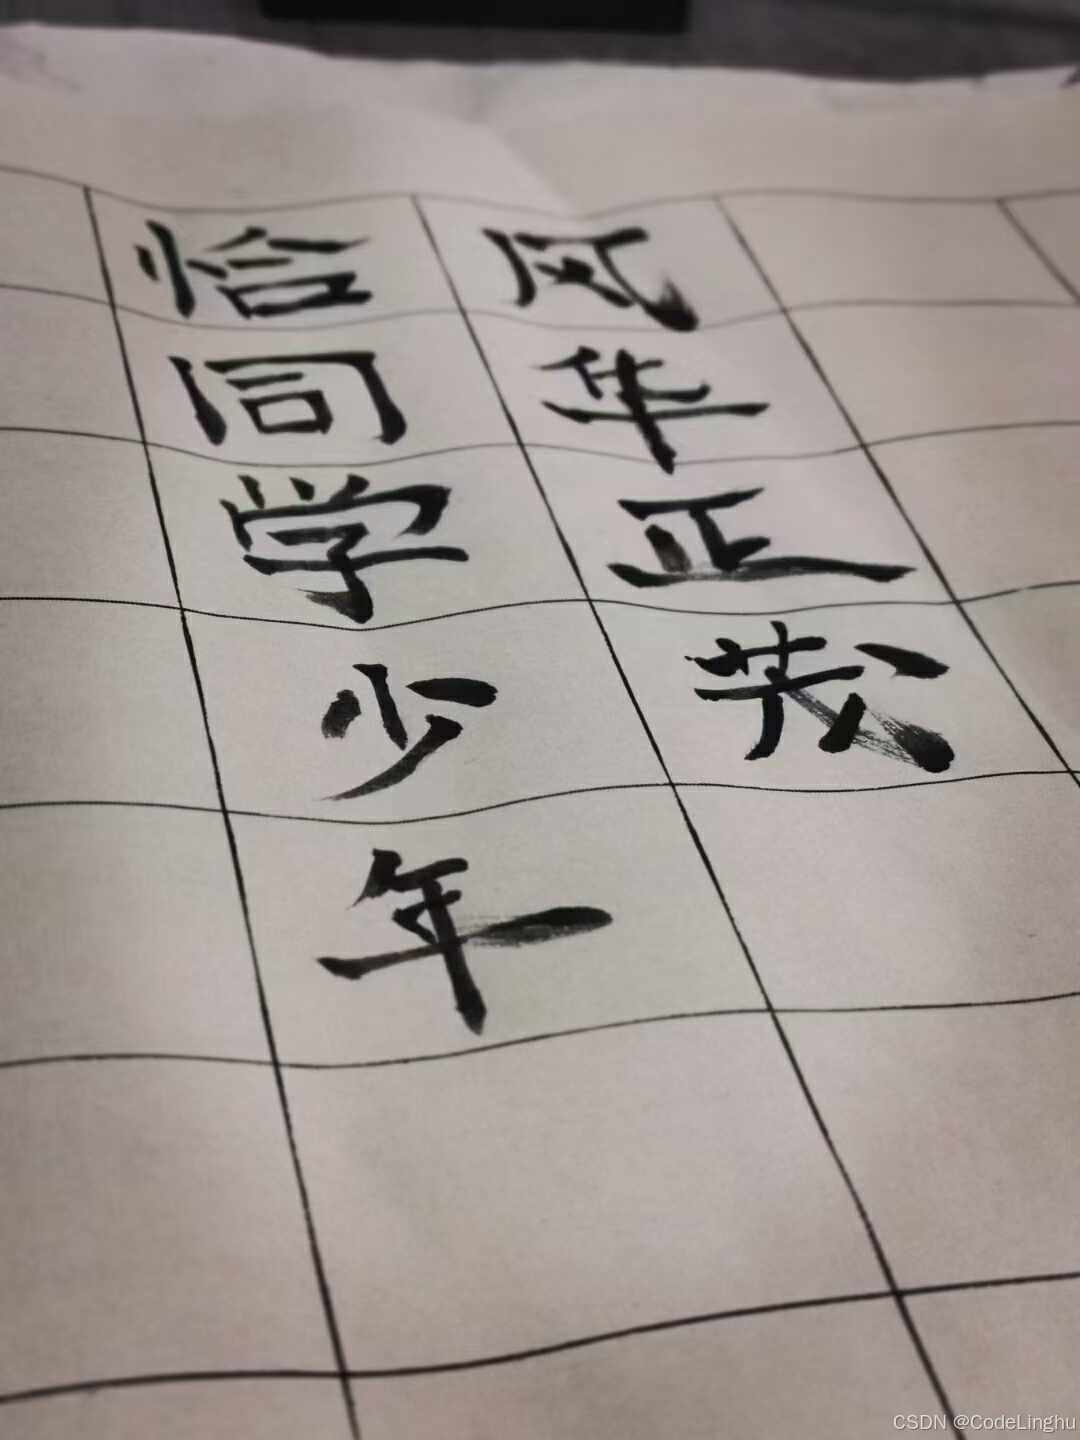 恰同学少年
风华正茂
CSDN @CodeLinghu